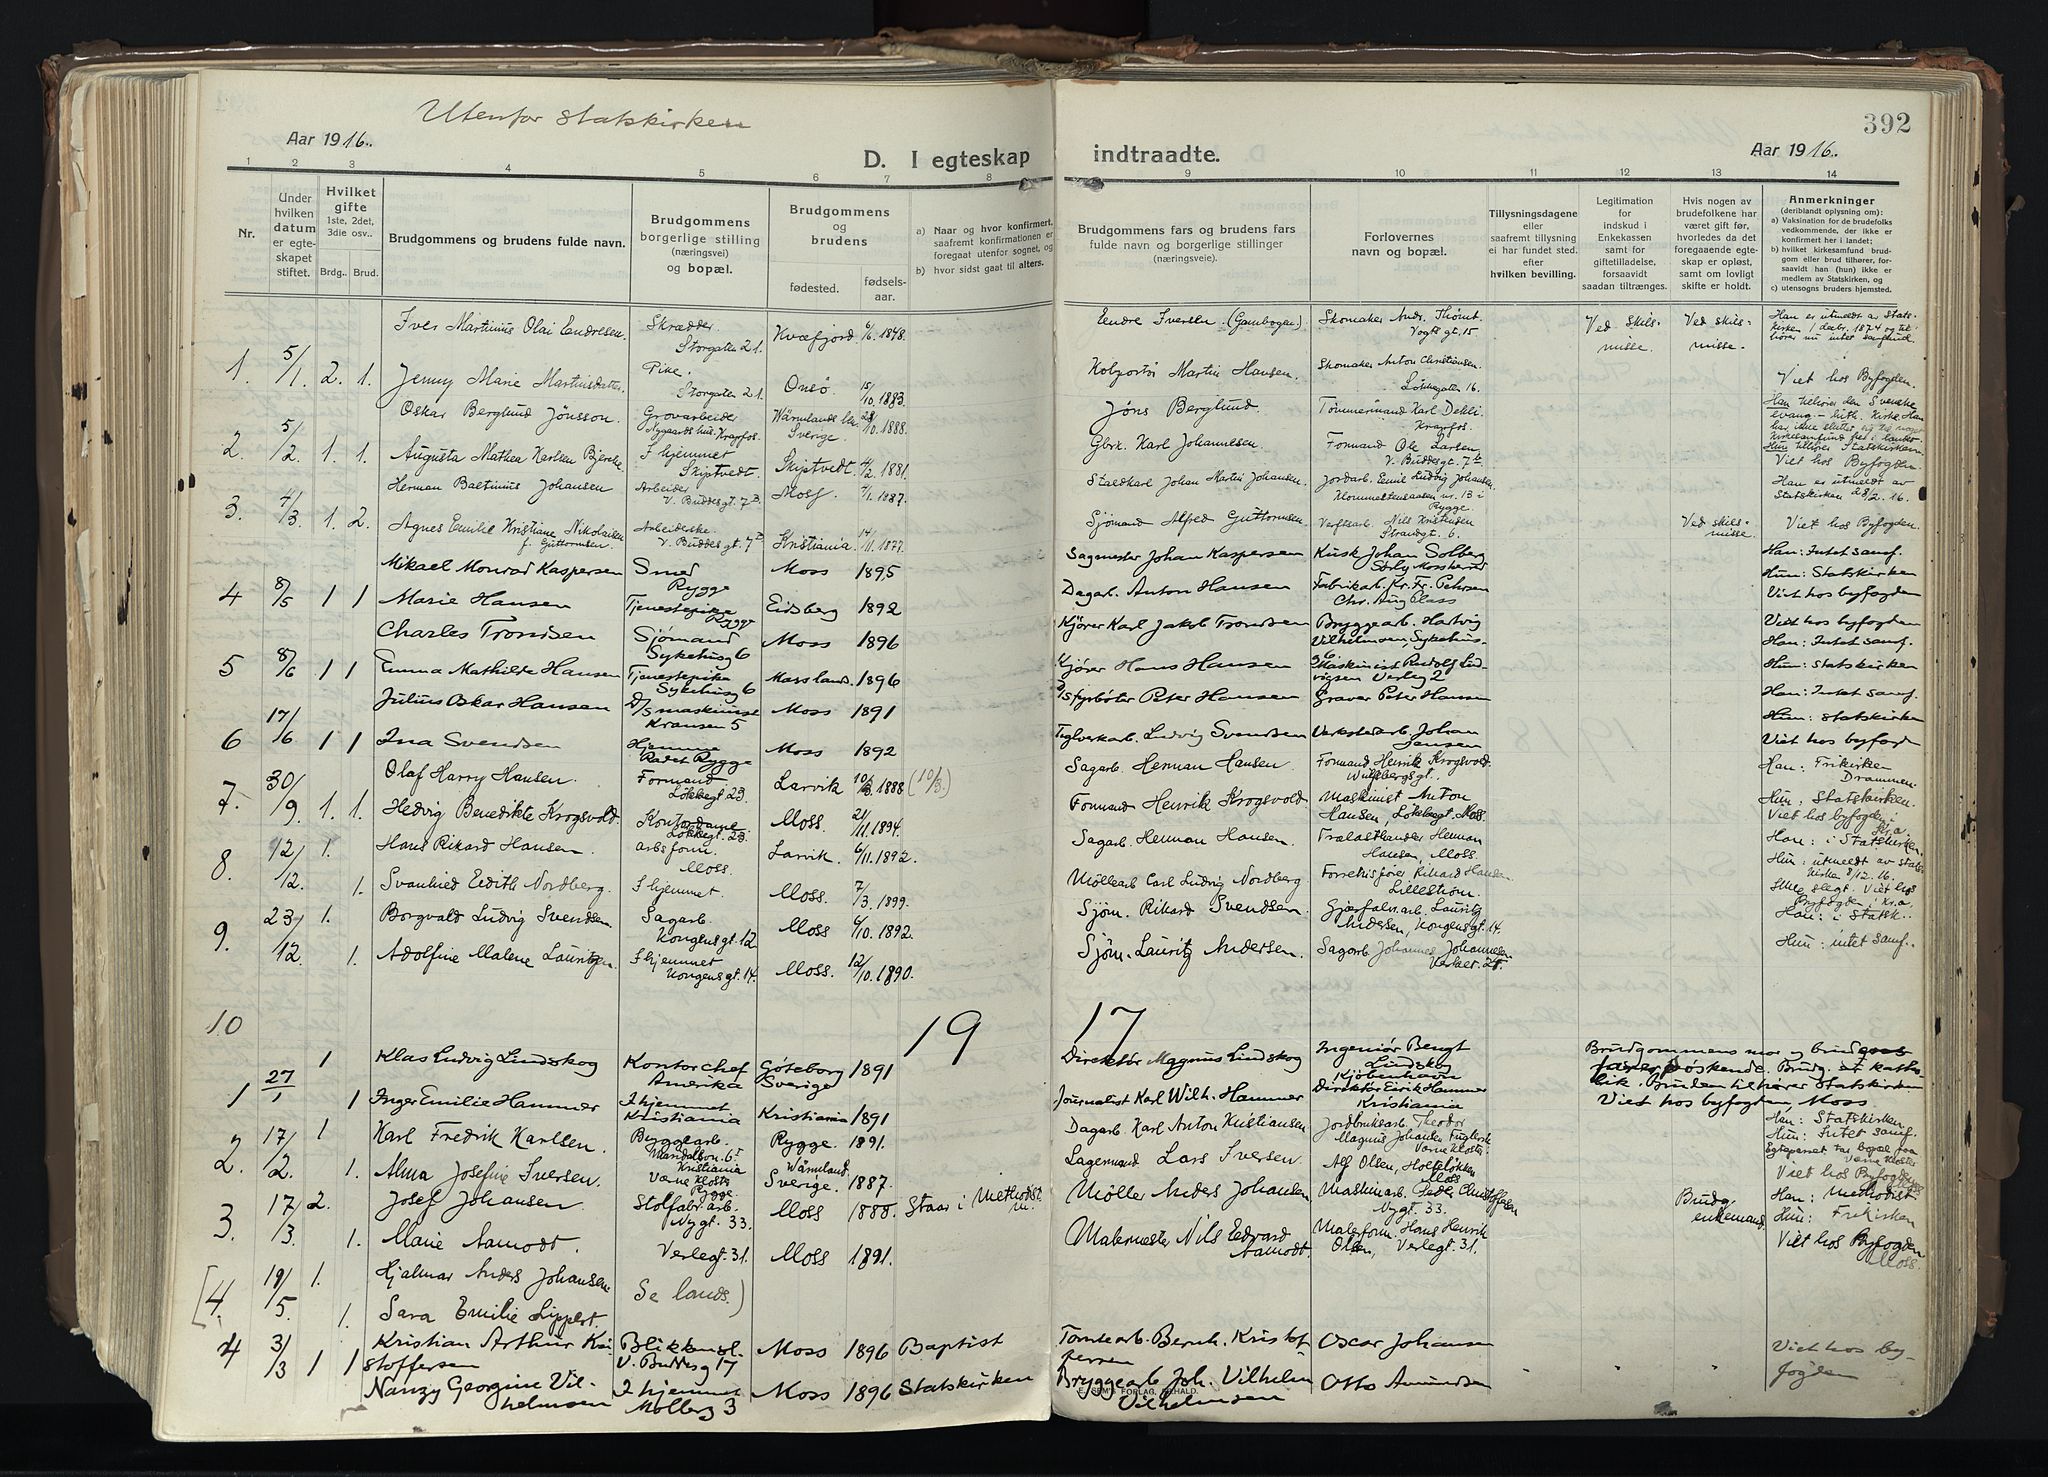 Utenfor statskirken
392
Aar 1916.
D. I egteskap indtraadte.
Aar 1916.
1 2 3 4 5 6 7 8 9 10 11 12 13 14
Nr.
Under hvilken datum er egteskapet stiftet.
Hvilket gifte 1ste, 2det, 3die osv..
Brdg.. Brud.
Brudgommens og brudens fulde navn.
Brudgommens borgerlige stilling (næringsvei) og bopæl.
Brudgommens og brudens
fødested.
fødselsaar.
a) Naar og hvor konfirmert, saafremt konfirmationen er foregaat utenfor sognet, og
b) hvor sidst gaat til alters.
Brudgommens fars og brudens fars fulde navn og borgerlige stillinger (næringsveie).
Forlovernes navn og bopæl.
Tillysningsdagene eller saafremt tillysning ei har fundet sted. efter hvilken bevilling.
Legitimation for indskud i Enkekassen samt for giftetilladelse, forsaavidt saadan tiltrænges.
Hvis nogen av brudefolkene har været gift før, hvorledes da det foregaaende egteskap er opløst, samt om lovligt skifte er holdt.
Anmerkninger (deriblandt oplysning om): a) Vaksination for de brudefolks vedkommende, der ikke er konfirmert her i landet; b) hvilket kirkesamfund brudgom eller brud tilhører, forsaavidt han (hun) ikke er medlem av Statskirken, og c) utensogns bruders hjemsted.
1. 5/1. 2. 1.
Iver Martinius Olai Endresen. Skrædder Storgaten 21. Kvæfjord. 6/6. 1848. Endre Iversen (Gambogen) Skomaker Andr. Thømt Vogts gt. 15 Ved skilsmisse. Ved skilsmisse. Han er utmeldt av Statskirken 1 decbr. 1874 og tilhører nu intet samfund.
Jenny Marie Martinsdatter. Pike. Storgaten 21. Onsö 15/10. 1883. Kolportör Martin Hansen. Skomaker Anton Christiansen Løkkegaten 16. Viet hos Byfogden.
2. 5/2. 1. 1.
Oskar Berglund Jönsson. Grovarbeider Nygaards hus. Krapfos. Wärmlands län Sverige. 28/10. 1888. Jöns Berglund. Tømmermand Karl Dehli Krapfos. Han tilhører den Svenske evang-luth. Kirke. Han har ikke sluttet sig til noget kirkesamfund her i landet. Hun tilhører Statskirken.
Augusta Mathea Karlsen Bjerke I hjemmet Skiptvedt. Skiptvedt 4/2. 1881. Gbrk. Karl Johannesen. Formand Ole Larsen V. Buddes gt. 7b Viet hos Byfogden.
3. 4/3. 1. 2.
Herman Baltinius Johansen Arbeider V. Buddes gt. 7b Moss. 4/1. 1887. Staldkarl Johan Martin Johansen. Jordarb. Emil Ludvig Johansen Rygge. Han er utmeldt av Statskirken 28/2. 16.
Agnes Emilie Kristiane Nikolaisen f. Guttormsen. Arbeiderske V. Buddes gt. 7b Kristiania. 14/11. 1877. Sjømand Alfred Guttormsen. Verftsarb. Nils Kristensen Strandgt. 6. Ved skilsmisse. Viet hos Byfogden.
4 8/5 1 1
Mikael Monrad Kaspersen Smed Rygge Moss 1895 Sagmester Johan Kaspersen Kusk Johan Solberg Sørby Mossherred Han: Intet samf.
Marie Hansen Tjenestepike Rygge Eidsberg 1892 Dagarb. Anton Hansen Fabrikarb. Kr. Fr. Petersen Chr. Aug Plass Hun: Statskirken Viet hos byfogden
5 8/6 1 1
Charles Trondsen Sjømand Sykehusg 6 Moss 1896 Kjører Karl Jakob Trondsen Bryggearb. Hartvig Vilhelmsen, Sykehusg 6. Viet hos byfogden Han: Intet samf.
Emma Mathilde Hansen Tjenestepike Sykehusg 6 Mossland. 1896 Kjører Hans Hansen Maskinist Rudolf Ludvigsen Verleg 2 Hun: statskirken
6 17/6 1 1
Julius Oskar Hansen D/s maskinist Kransen 5 Moss 1891 D/s fyrbøter Peter Hansen Graver Peter Hansen Han: Intet samf.
Ina Svendsen Hjemme Rygge Moss 1892 Teglverkarb. Ludvig Svendsen Verkstedarb. Johan Jensen Hun: statskirken Viet hos byfogden
7. 30/9. 1. 1.
Olaf Harry Hansen. Formand Løkkegt 23. Larvik 10/3. 1888 (10/3.) Sagarb. Herman Hansen. Formand Henrik Krogsvold. Wulfsbergsgt. Han: Frikirken Drammen.
Hedvig Benedikte Krogsvold. Kontordame Løkkegt. 23. Moss. 21/11. 1894. Formand Henrik Krogsvold. Maskinist Anton Hansen Løkkegt. Moss. Hun: Statskirken. Viet hos byfogden i Kr.a.
8. 12/12. 1. 1.
Hans Rikard Hansen. arbsform. Moss. Larvik. 6/11. 1892. Sagarb. Herman Hansen. Trælasthandler Herman Hansen, Moss. Han: i Statskirken.
Svanhied Edith Nordberg. I hjemmet. Moss. 7/3. 1899. Møllearb Carl Ludvig Nordberg. Rikard Hansen Lillestrøm. Hun: utmeldt av statskirken 8/12. 16. Viet hos Byfogden i Kr.a.
9. 23/12. 1. 1.
Borgvald Ludvig Svendsen Sagarb. Kongens gt. 12 Moss 4/10. 1892. Sjøm. Rikard Svendsen. Lauritz Andersen, Kongens gt. 14. Han: i Statsk..
Adolfine Malene Lauritzen. I hjemmet Kongens gt. 14. Moss. 12/10. 1890. Sjøm. Lauritz Andersen. Sagarb Johannes Johannesen Hun: intet samf..
10
19 17
1 27/1 1 1
Klas Ludvig Lindskog Kontorchef Amerika Göteborg Sverige 1891 Direktör Magnus Lindskog Ingeniör Bengt Lindskog Kjöbenhavn Brudgommens mor og brudens far er søskende. Brudg. er katholik. Bruden tilhører Statskirken
Inger Emilie Hammer I hjemmet Kristiania Kristiania 1891 Journalist Karl Wilh. Hammer Direktör Eirik Hammer Kristiania Viet hos byfogden Moss
2. 17/2. 1 1.
Karl Fredrik Karlsen. Byggearb. Kristiania Rygge. 1891. Dagarb. Karl Anton Kristiansen Jordbruksarb. Theodor Magnus Johansen Værne Kloster Han: Statskirken. Hun: Intet samf.
Alma Josefine Iversen. Værne Kloster Rygge. Wärmland Sverige. 1887. Lagermand Lars Iversen. Alf Olsen, Holteløkken Moss Egteparret får bopæl paa Værne Kloster Viet hos Byfogden
3. 17/3. 2. 1.
Josef Johansen Stolfabr. arb. Nygt. 33. Moss 1888. Staar i Methodistm. Møller Anders Johansen Maskinarb. Peder Christoffersen Nygt. 33. Brudg. enkemand Han: Methodist
Marie Aamodt. Verlegt. 31. Moss 1891. Malermester Nils Edvard Aamodt. Malerform. Hans Henrik Olsen, Verlegt. 31. Hun: Frikirken Viet hos Byfogden Moss.
[4. 19/5. 1. 1.
Hjalmar Anders Johansen Se lands.)
Sara Emilie Lippert.
4 3/3 1 1
Kristian Arthur Kristoffersen Blikkensl. V. Buddes g 17 Moss 1896 Baptist Tomtearb. Bernh. Kristoffersen Oscar Johansen Viet hos byfogden
Nanzy Georgine Vilhelmsen I hjemmet Mölleg 3 Moss 1896 Statskirken Bryggearb Joh. Vilhelm Vilhelmsen Otto Amundsen
E. SEM'S FORLAG, F.HALD.